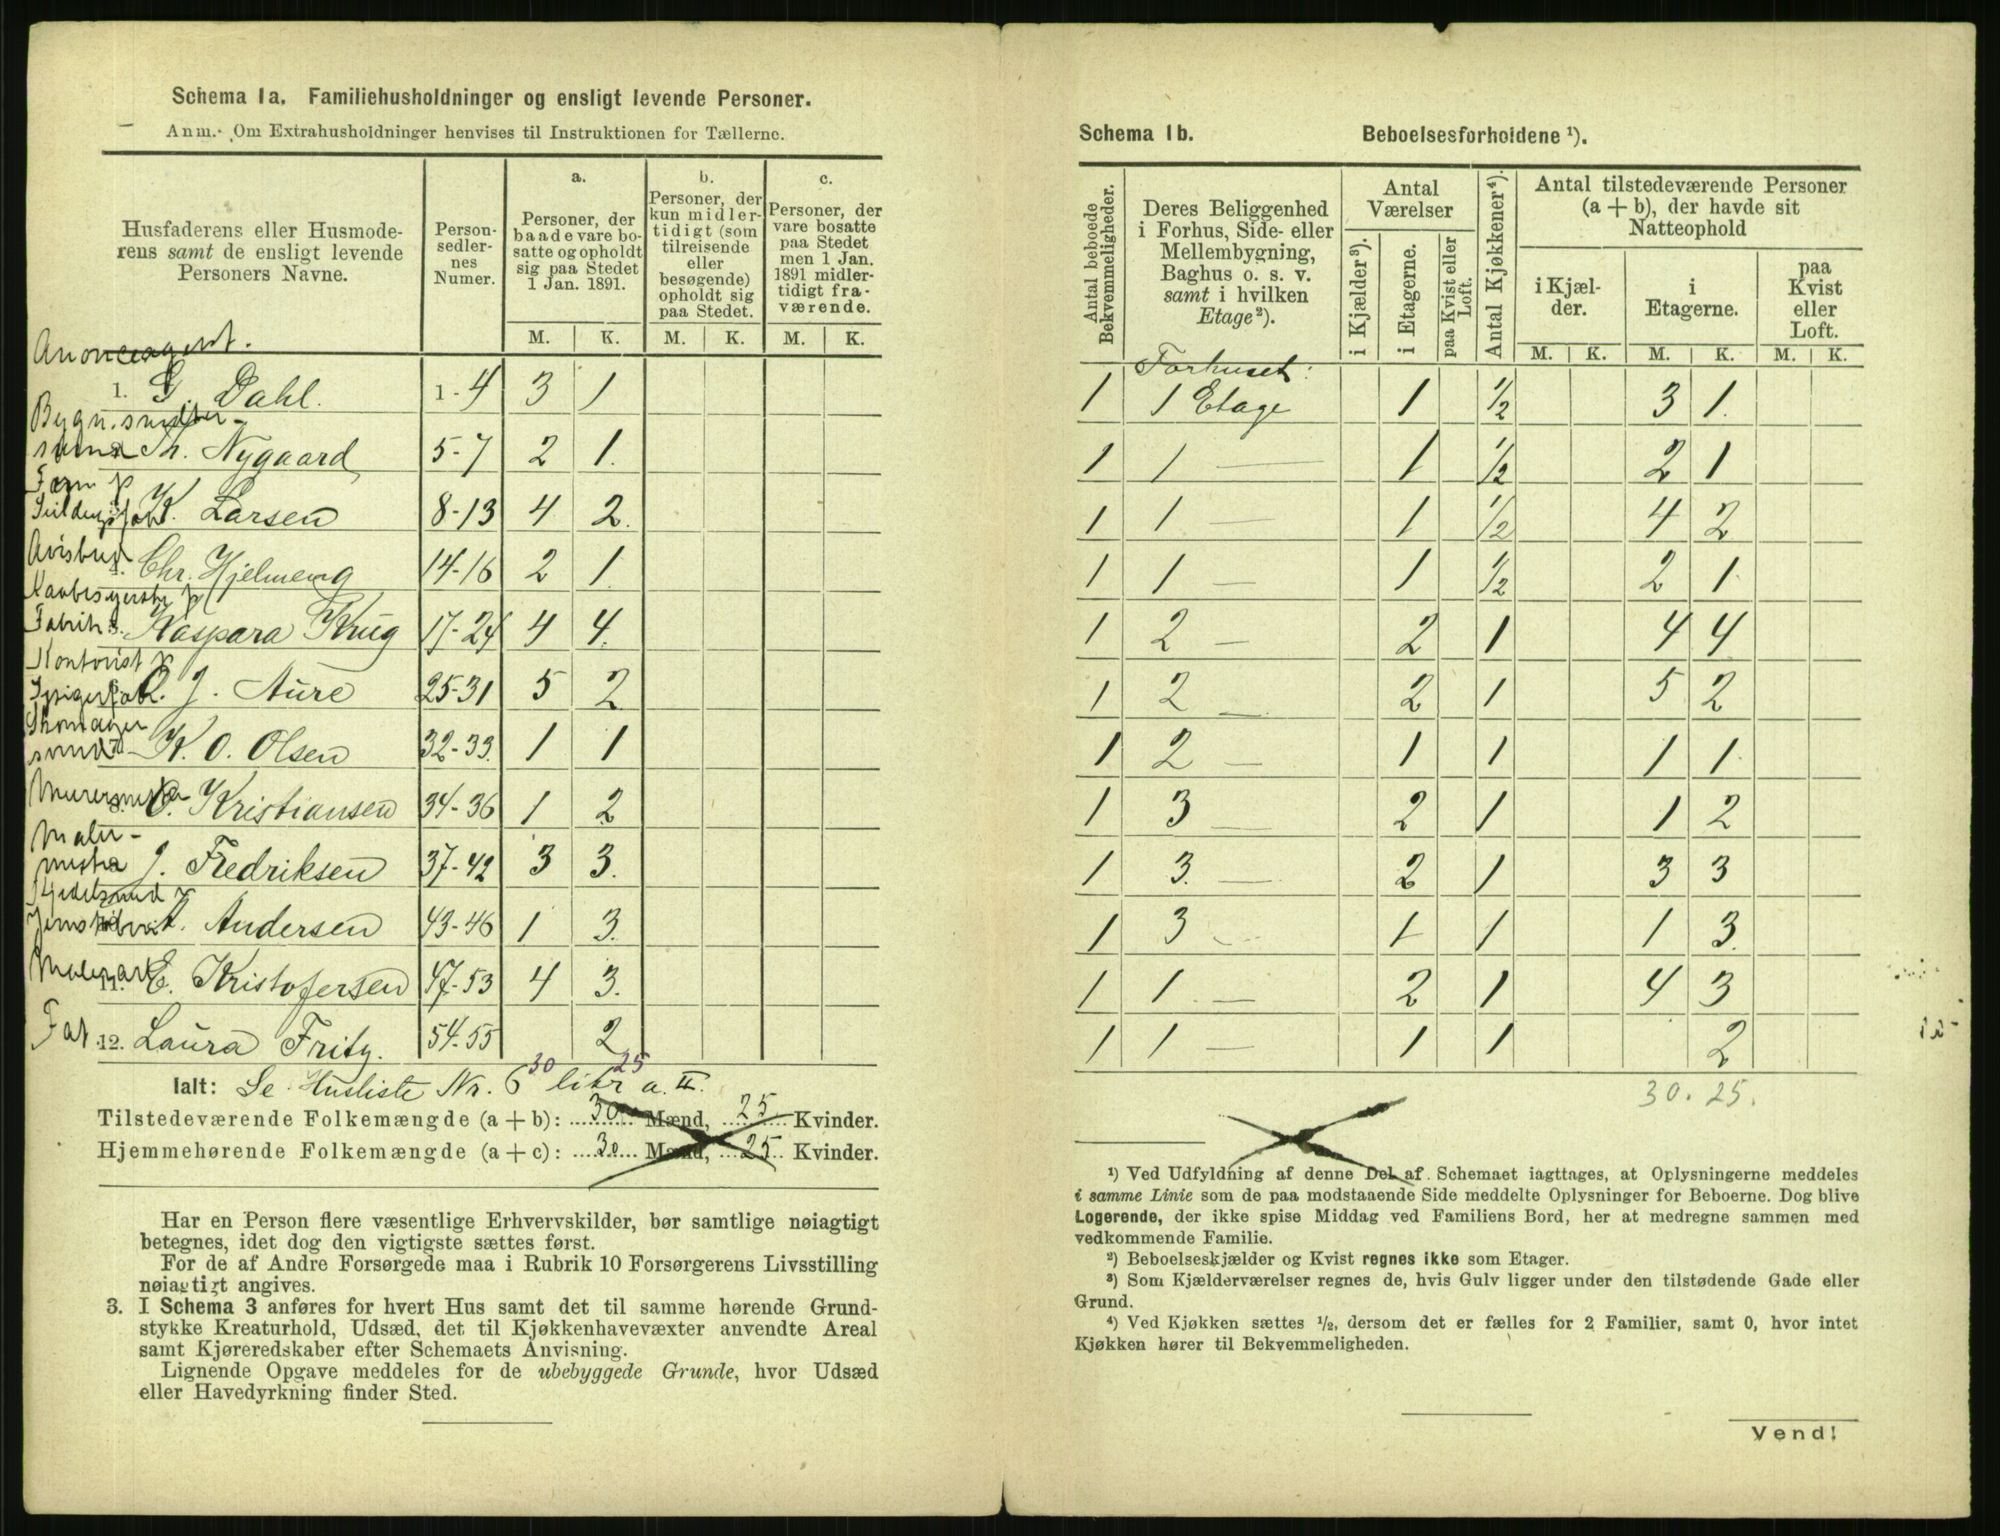 Schema 1a. Familiehusholdninger og ensligt levende Personer.
Anm. Om Extrahusholdninger henvises til Instruktionen for Tællerne.
Husfaderens eller Husmoderens samt de ensligt levende Personers Navne.
Personsedlernes Numer.
a. Personer, der baade vare bosatte og opholdt sig paa Stedet 1 Jan. 1891.
b. Personer, der kun midlertidigt (som tilreisende eller besøgende) opholdt sig paa Stedet.
c. Personer, der vare bosatte paa Stedet men 1 Jan. 1891 midlertidigt fraværende.
M. K. M. K. M. K.
Anonceagent.
1. G. Dahl. 1-4 3 1
Bygn.snedker-
svend Th. Nygaard 5-7 2 1.
Farm p
K. Larsen 8-13 4 2.
Avisbud
Chr. Hjelmeng 14-16 2 1.
Fabrik 5. Kaspara Krug 17-24 4 4.
Kontorist p
O. J. Aure 25-31 5 2
Skomager
svend 7 K. O. Olsen 32-33. 1 1
Murermester
8. O. Kristiansen 34-36 1 2
Maler-
mester J. Fredriksen 37-42 3 3.
A. Andersen 43-46 1 3.
11. E. Kristofersen 47-53 4 3.
Fat 12. Laura Fritz. 54-55 2
30 25
Ialt: Se Husliste Nr. 6 litr a. II.
Tilstedeværende Folkemængde (a + b): 30 Mænd, 25 Kvinder.
Hjemmehørende Folkemængde (a + c): 30 Mænd, 25 Kvinder.
Har en Person flere væsentlige Erhvervskilder, bør samtlige nøiagtigt
betegnes, idet dog den vigtigste sættes først.
For de af Andre Forsørgede maa i Rubrik 10 Forsørgerens Livsstilling
nøiagtigt angives.
3. I Schema 3 anføres for hvert Hus samt det til samme hørende Grund-
stykke Kreaturhold, Udsæd, det til Kjøkkenhavevæxter anvendte Areal
samt Kjøreredskaber efter Schemaets Anvisning.
Lignende Opgave meddeles for de ubebyggede Grunde, hvor Udsæd
eller Havedyrkning finder Sted.
Schema 1b. Beboelsesforholdene ¹).
Antal beboede Bekvemmeligheder.
Deres Beliggenhed i Forhus, Side- eller Mellembygning, Baghus o. s. v. samt i hvilken Etage²).
Antal Værelser
i Kjælder³).
i Etagerne.
paa Kvist eller Loft.
Antal Kjøkkener⁴).
Antal tilstedeværende Personer (a + b), der havde sit Natteophold
i Kjælder.
i Etagerne.
paa Kvist eller Loft.
M. K. M. K. M. K.
Forhuset:
1 1 Etage 1 1/2 3 1.
1 1 — 1 1/2 2 1
1 1 — 1 1/2 4 2
1 1 — 1 1/2 2 1
1 2 — 2 1 4 4
1 2 — 2 1 5 2
1 2 — 1 1 1 1.
1 3 — 2 1 1 2
1 3. — 2 1 3 3
1 3 — 1 1 1 3.
1 1. — 2 1 4 3
1 1 — 1 1 2
30. 25.
¹) Ved Udfyldning af denne Del af Schemaet iagttages, at Oplysningerne meddeles
i samme Linie som de paa modstaaende Side meddelte Oplysninger for Beboerne. Dog blive
Logerende, der ikke spise Middag ved Familiens Bord, her at medregne sammen med
vedkommende Familie.
²) Beboelseskjælder og Kvist regnes ikke som Etager.
³) Som Kjælderværelser regnes de, hvis Gulv ligger under den tilstødende Gade eller
Grund.
⁴) Ved Kjøkken sættes ½, dersom det er fælles for 2 Familier, samt 0, hvor intet
Kjøkken hører til Bekvemmeligheden.
Vend!